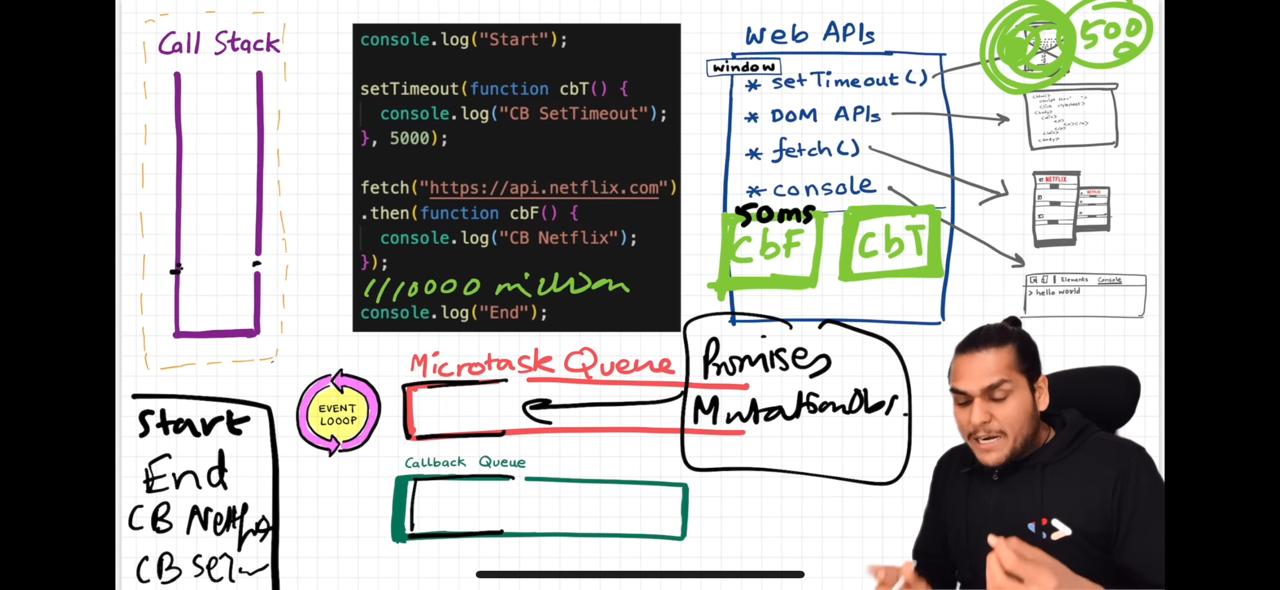 Call Stack
console.log("Start");
setTimeout(function cbT() {
console.log("CB SetTimeout");
}, 5000);
fetch("https://api.netflix.com")
.then(function cbF() {
console.log("CB Netflix");
});
1//10000 million
console.log("End");
Web APIs
window
* setTimeout()
* DOM APIs
* fetch()
* console
50ms
CbF
CbT
500
NETFLIX
Elements Console
> hello world
EVENT
LOOOP
Microtask Queue
Promises
MutationObs.
Callback Queue
Start
End
CB Netflix
CB Set